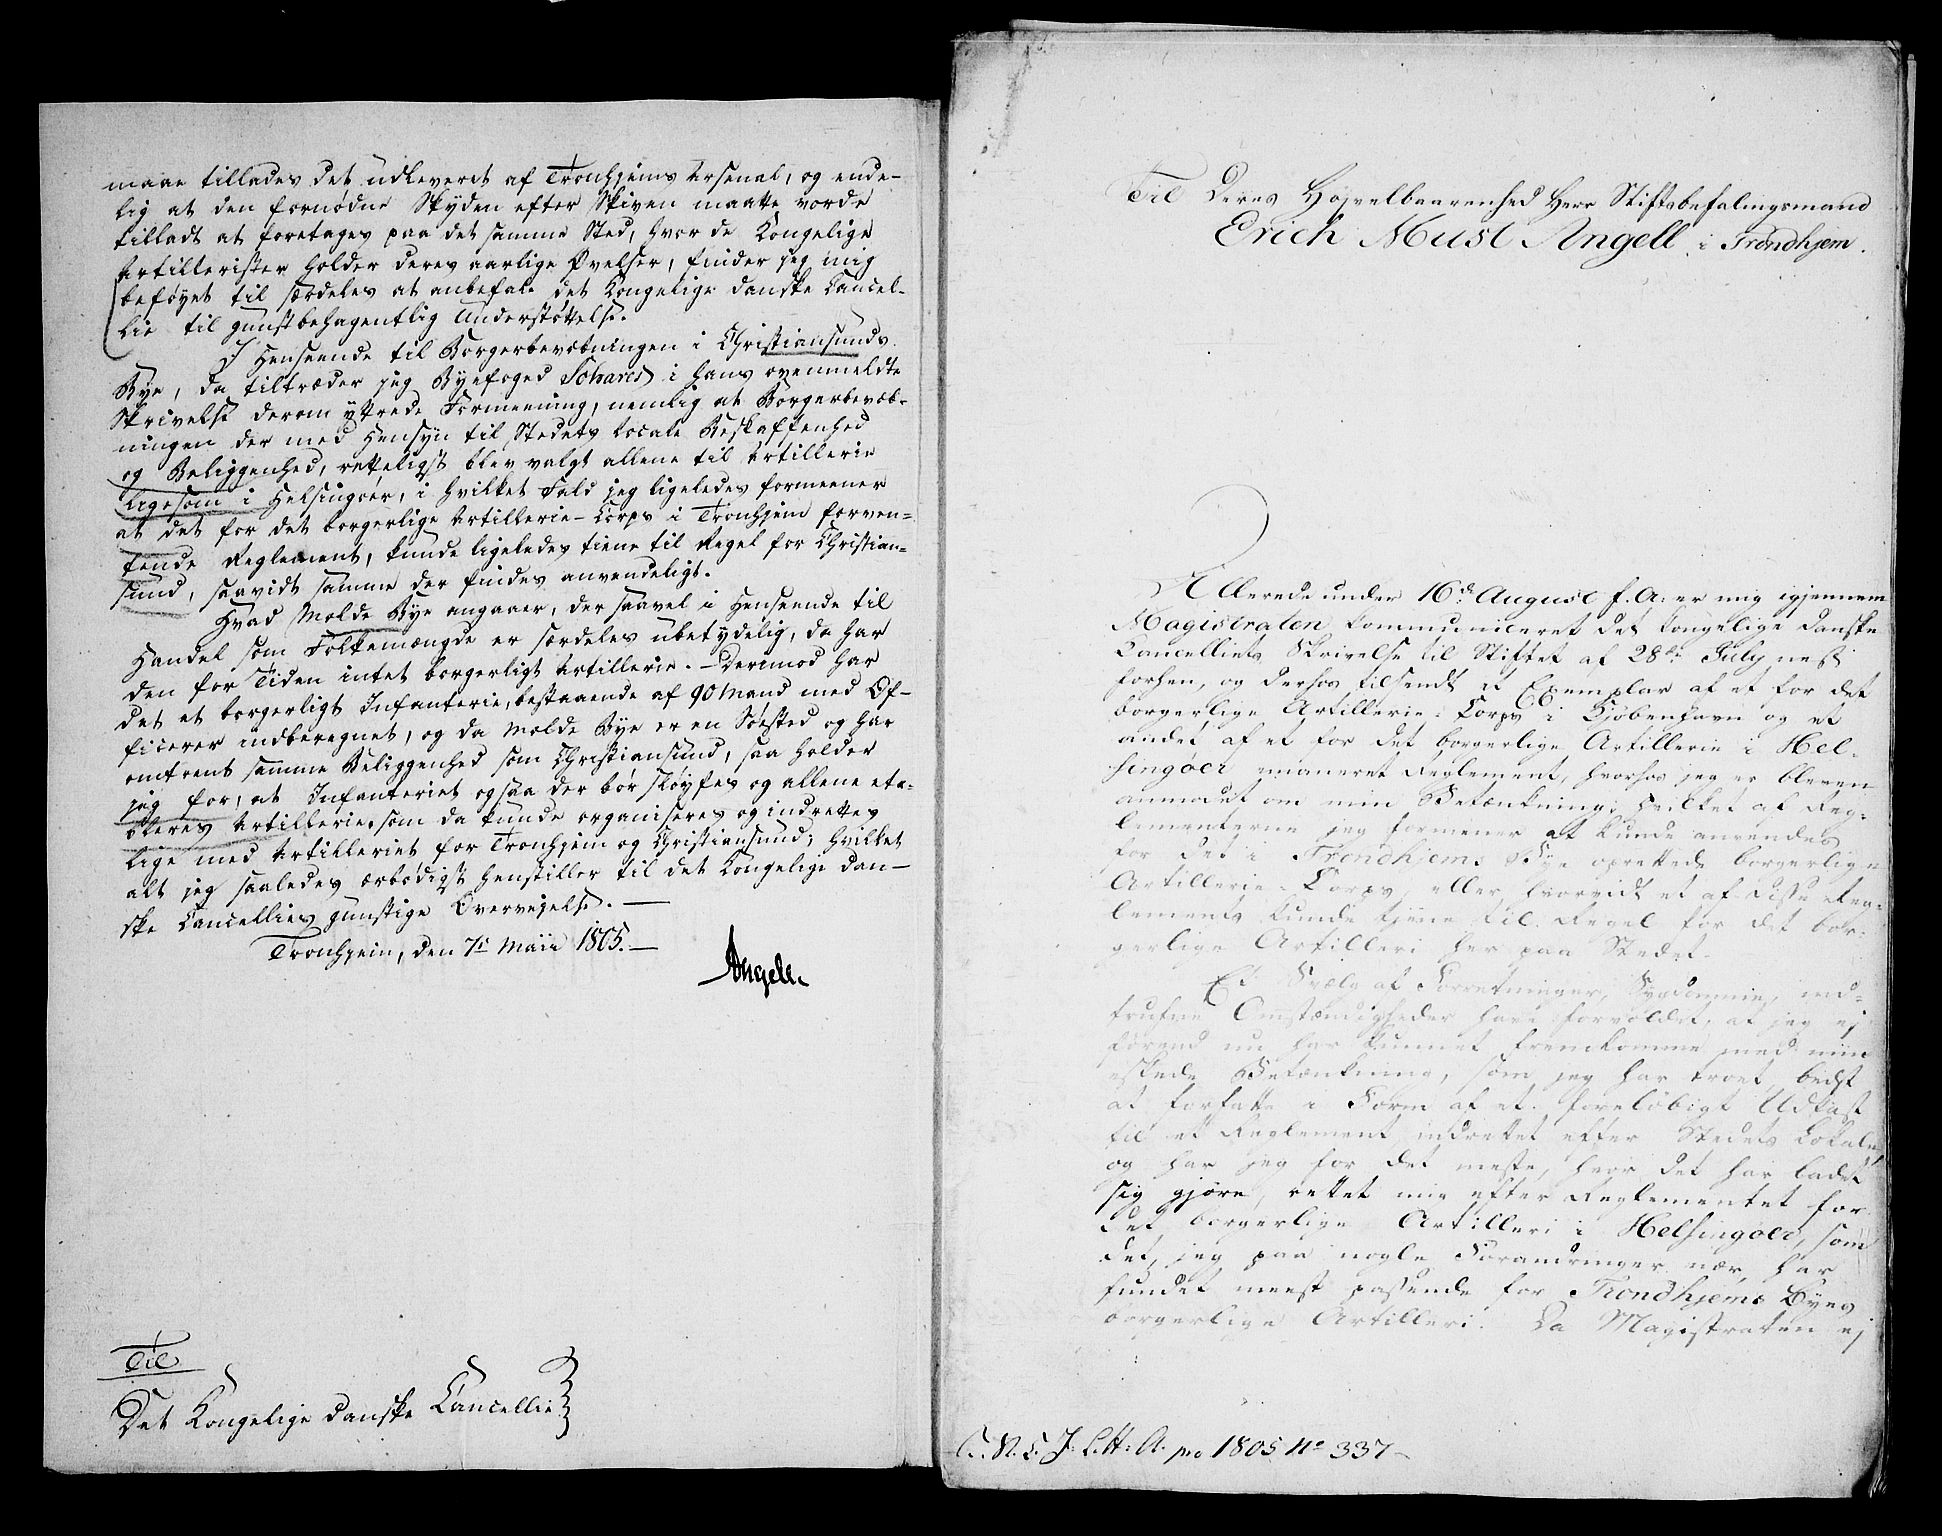 maae tillades det udleveret af Tronhjems Arsenal, og ende-
lig at den fornødne Skyden efter Skiven maatte vorde
tilladt at foretages paa det samme Sted, hvor de Kongelige
Artillerister holder deres aarlige Øvelser, finder jeg mig
beføyet til særdeles at anbefale det Kongelige danske Cancel-
lie til gunstbehagentlig Understøttelse.
I Henseende til Borgerbevæbningen i Christiansunds
Bye, da tiltræder jeg Byefoged Schares i hans ovenmeldte
Skrivelse derom yttrede Formeening, nemlig at Borgerbevæb-
ningen der med Hensyn til Stedets locale Beskaffenhed
og Beliggenhed, retteligst blev valgt allene til Artillerie
ligesom i Helsingøer, i hvilket Fald jeg ligeledes formeener
at det for det borgerlige Artillerie-Corps i Tronhjem forven-
tende Reglement, kunde ligeledes tiene til Regel for Christian-
sund, saavidt samme der findes anvendeligt.
Hvad Molde Bye angaaer, der saavel i Henseende til
Handel som Folkemængde er særdeles ubetydelig, da har
den for Tiden intet borgerligt Artillerie. - Derimod har
det et borgerligt Infanterie, bestaaende af 90 Mand med Of-
ficerer indberegnet, og da Molde Bye er en Søested og har
omtrent samme Beliggenhed som Christiansund, saa holder
jeg for, at Infanteriet ogsaa der bør sløyfes og allene eta-
bleres Artillerie, som da kunde organiseres og indrettes
lige med Artilleriet for Tronhjem og Christiansund; hvilket
alt jeg saaledes ærbødigst henstiller til det Kongelige Dan-
ske Cancellies gunstige Overvejelse. —
Tronhjem, den 7de Maii 1805. —
Angell
Til
Det Kongelige danske Cancellie
Til Deres Høyvelbaarenhed Herr Stiftsbefalingsmand
Erich Must Angell i Trondhjem.
Allerede under 16de August f. A: er mig igjennem
Magistraten kommuniceret det kongelige danske
Cancellies Skrivelse til Stiftet af 28de July nest
forhen, og derhos tilsendt et Exemplar af et for det
borgerlige Artillerie-Corps i Kjøbenhavn og et
andet af et for det borgerlige Artillerie i Hel-
singøer emaneret Reglement, hvorhos jeg er bleven
anmodet om min Betænkning, hvilket af Reg-
lementerne jeg formener at kunde anvendes
for det i Trondhjems Bye oprettede borgerlige
Artillerie-Corps, eller hvorvidt et af disse Reg-
lements kunde tjene til Regel for det bor-
gerlige Artilleri her paa Stedet.
Et Svælg af Forretninger, Sygdomme, ind-
trufne Omstændigheder have forvoldet, at jeg ej
førend nu har kunnet fremkomme med min
eskede Betænkning, som jeg har troet bedst
at forfatte i Form af et foreløbigt Udkast
til et Reglement indrettet efter Stedets Lokale,
og har jeg for det meste, hvor det har ladet
sig gjøre, rettet mig efter Reglementet for
det borgerlige Artilleri i Helsingøer, som
det, jeg paa nogle Forandringer nær, har
fundet meest passende for Trondhjems Byes
borgerlige Artilleri. Da Magistraten ej
Litt: A. pro 1805 No 337